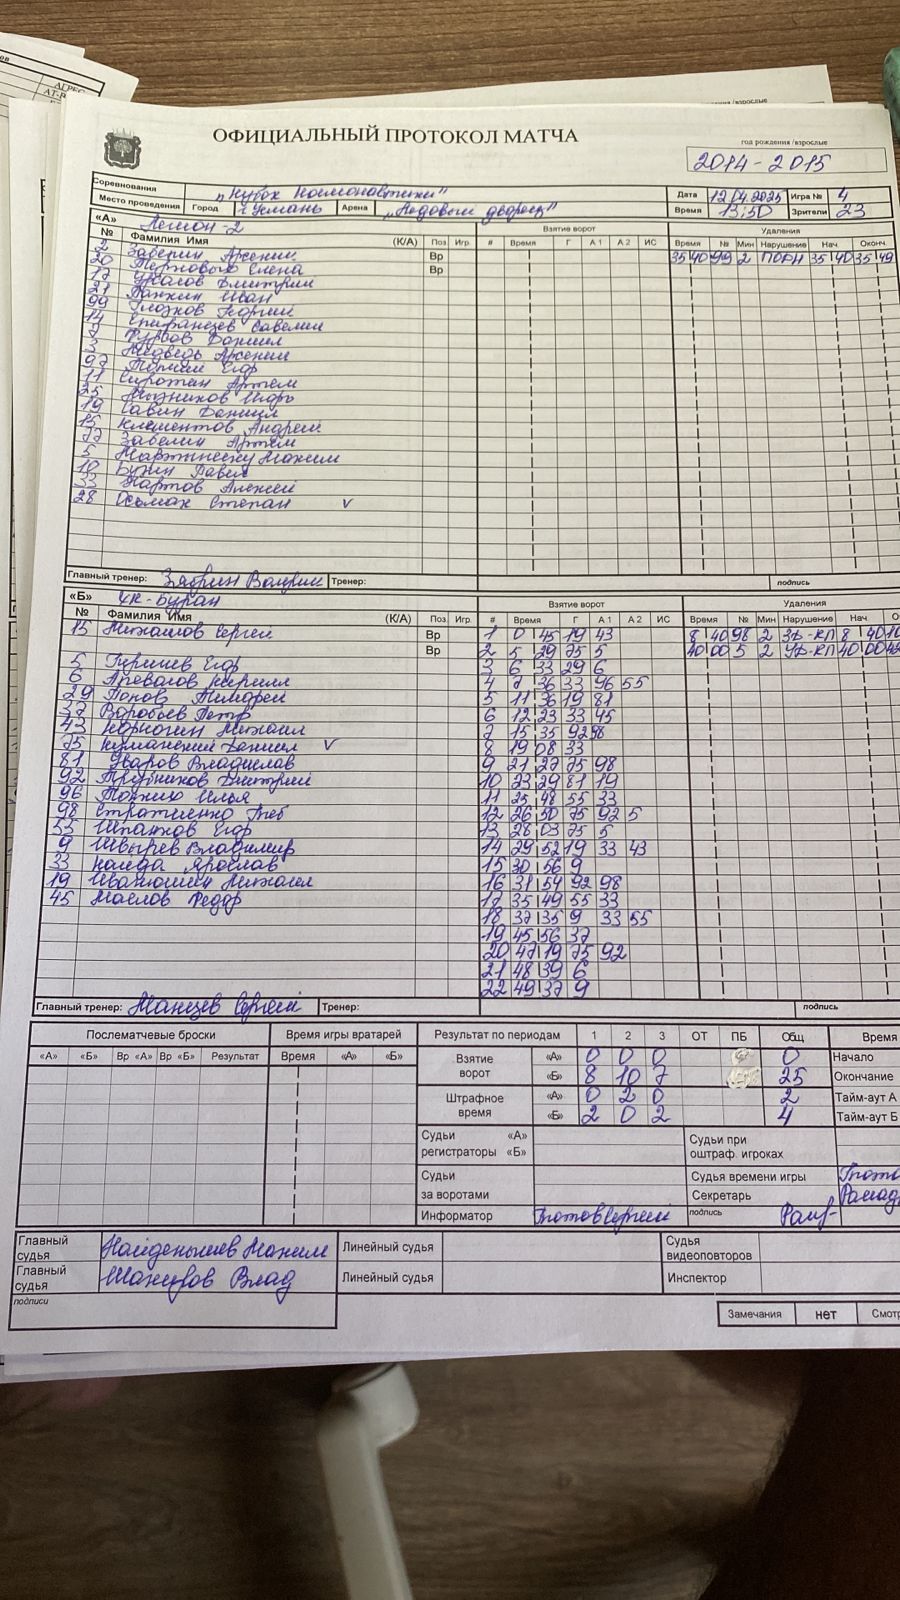 ОФИЦИАЛЬНЫЙ ПРОТОКОЛ МАТЧА
год рождения /взрослые
2014-2015
Соревнования „Кубок Космонавтики"
Дата 12.04.2025 Игра № 4
Место проведения Город г.Усмань Арена „Ледовый дворец"
Время 13:50 Зрители 23
«А» Легион-2 Взятие ворот Удаления
№ Фамилия Имя (К/А) Поз Игр. # Время Г А 1 А 2 ИС Время № Мин Нарушение Нач Оконч.
2 Заверин Арсений Вр 35 40 99 2 35 40 35 49
20 Терновых Елена Вр
17 Урвалов Дмитрий
21 Панкин Иван
99 Глазков Георгий
14 Епифанцев Савелий
7 Фурсов Даниил
3 Медведь Арсений
97 Егор
11 Сиротин Артем
25 Игорь
19 Савин Даниил
15 Климентов Андрей
77 Забелин Артём
5 Максим
10 Бунин Павел
33 Картов Алексей
28 Осьмак Степан V
Главный тренер: Зябрин Вадим Тренер: подпись
«Б» ХК-Буран Взятие ворот Удаления
№ Фамилия Имя (К/А) Поз Игр. # Время Г А 1 А 2 ИС Время № Мин Нарушение Нач
15 Сергей Вр 1 0 45 19 43 8 40 98 2 8 40
Вр 2 5 29 75 5 40 00 5 2 40 00
5 Егор 3 6 33 29 6
6 Кирилл 4 7 36 33 96 55
29 Попов Тимофей 5 11 36 19 81
37 Воробьев Петр 6 12 23 33 45
43 Корногин Михаил 7 15 35 92 98
75 Куманский Даниил V 8 19 08 33
81 Уваров Владислав 9 21 27 75 98
92 Трубников Дмитрий 10 23 29 81 19
96 Илья 11 25 48 55 33
98 Стратиенко Глеб 12 26 50 75 92 5
55 Шпаков Егор 13 28 03 75 5
9 Швырев Владимир 14 29 52 19 33 43
33 Ярослав 15 30 56 9
19 Иванюшин Михаил 16 31 54 92 98
45 Маслов Федор 17 35 49 55 33
18 37 35 9 33 55
19 45 56 37
20 47 19 75 92
21 48 39 6
22 49 37 9
Главный тренер: Жанцев Сергей Тренер: подпись
Послематчевые броски Время игры вратарей Результат по периодам 1 2 3 ОТ ПБ Общ Время
«А» «Б» Вр «А» Вр «Б» Результат Время «А» «Б» Взятие ворот «А» 0 0 0 0 Начало
«Б» 8 10 7 25 Окончание
Штрафное время «А» 0 2 0 2 Тайм-аут А
«Б» 2 0 2 4 Тайм-аут Б
Судьи регистраторы «А» «Б» Судьи при оштраф. игроках
Судьи за воротами Судья времени игры
Секретарь
Информатор Сергей подпись
Главный судья Найденышев Максим Линейный судья Судья видеоповторов
Главный судья Влад Линейный судья Инспектор
подписи
Замечания нет